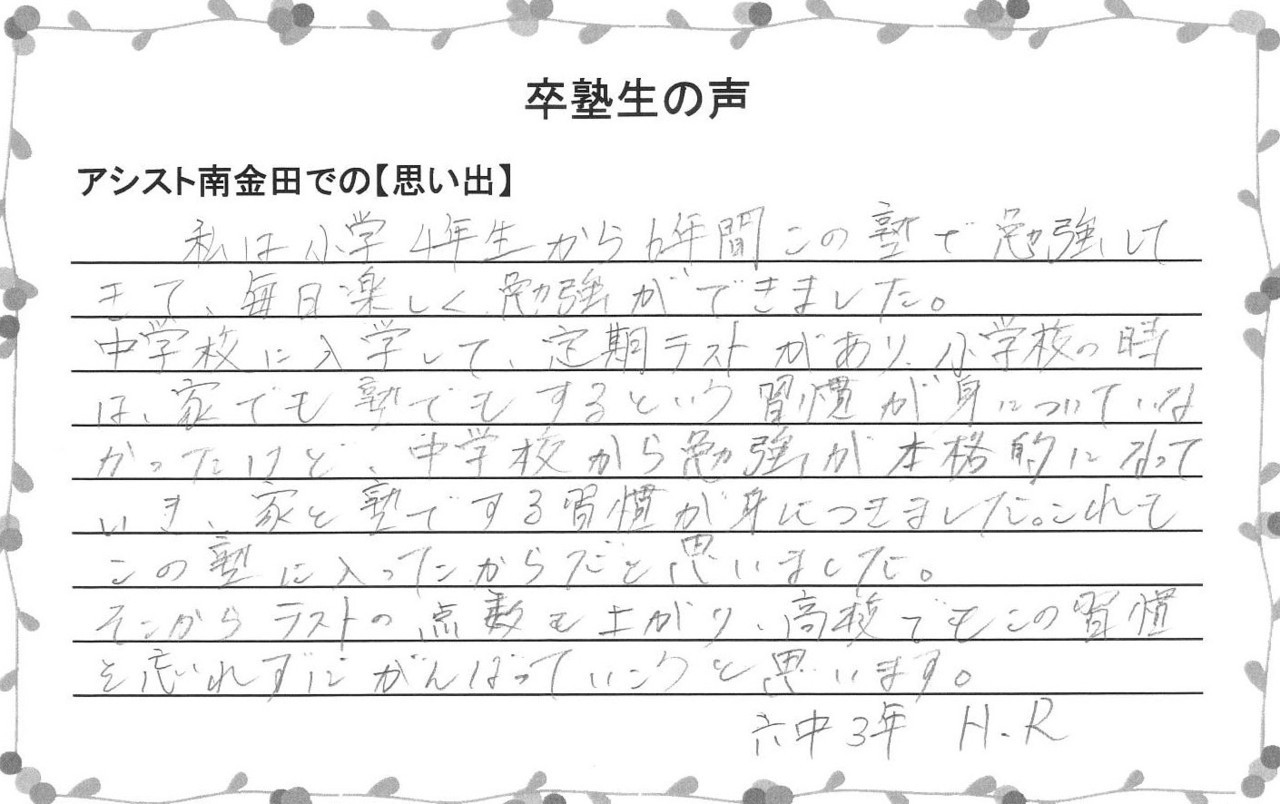 卒塾生の声
アシスト南金田での【思い出】
私は小学4年生から6年間この塾で勉強して
きて、毎日楽しく勉強ができました。
中学校に入学して、定期テストがあり、小学校の時
は、家でも塾でもするという習慣が身についていな
かったけど、中学校から勉強が本格的になって
いき、家と塾でする習慣が身につきました。これも
この塾に入ったからだと思いました。
そこからテストの点数も上がり、高校でもこの習慣
を忘れずにがんばっていこうと思います。
六中3年 H.R